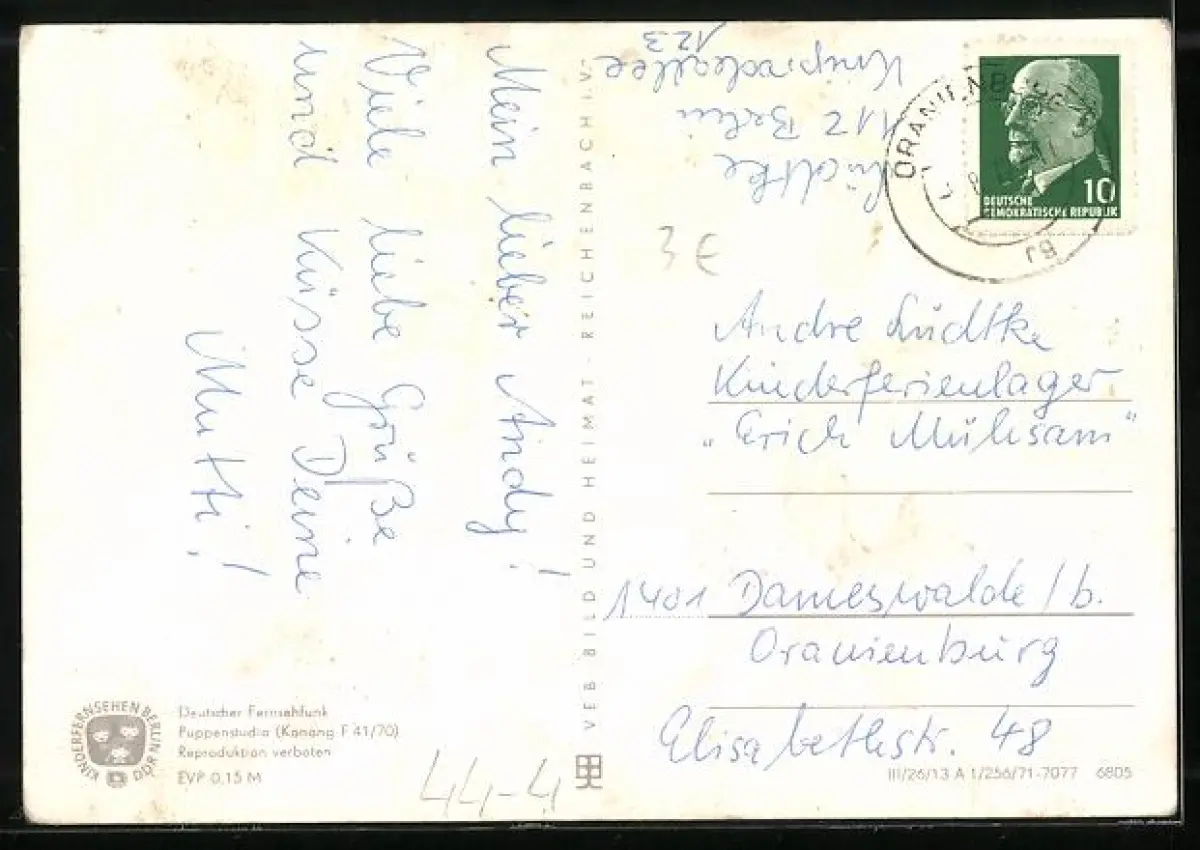 Mein lieber Andy!
Viele liebe Grüße
und Küsse Deine
Mutti!
Lüdtke
112 Berlin
123
VEB BILD UND HEIMAT · REICHENBACH I. V.
ORANIENB
rg
DEUTSCHE
DEMOKRATISCHE REPUBLIK
10
3€
Andre Lüdtke
Kinderferienlager
„Erich Mühsam“
1401 Dameswalde / b.
Oranienburg
Elisabethstr. 48
KINDERFERNSEHEN BERLIN DDR
Deutscher Fernsehfunk
Puppenstudio (Kanang F 41/70)
Reproduktion verboten
EVP 0,15 M
44-4
III/26/13 A 1/256/71-7077 6805